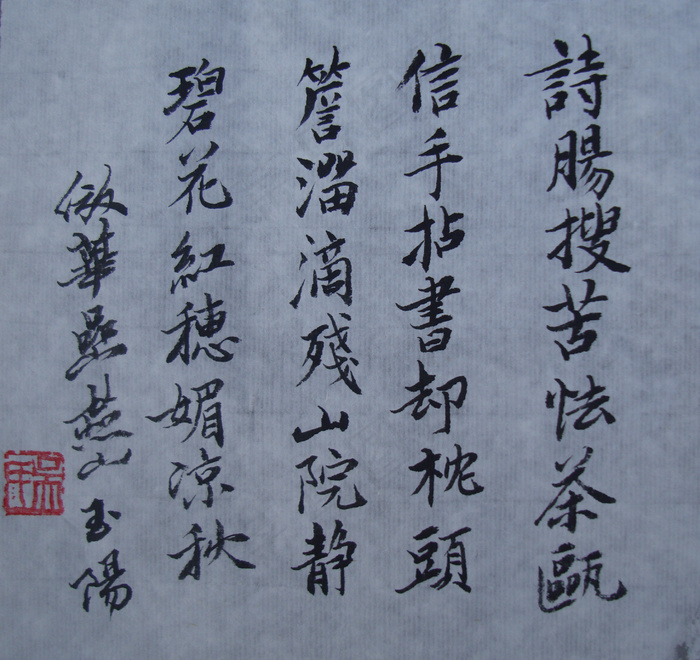 詩腸搜苦怯茶甌
信手拈書却枕頭
簷溜滴殘山院静
碧花紅穗媚凉秋
倣華喦燕山玉陽